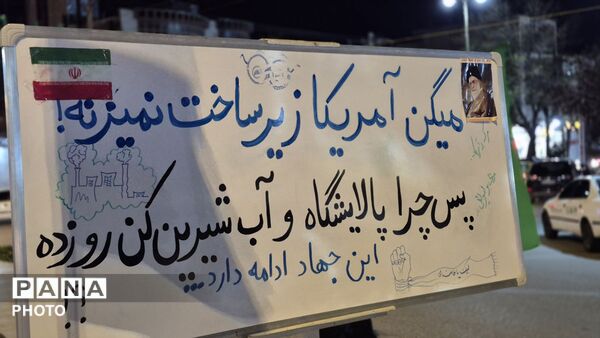 میگن آمریکا زیرساخت نمیزنه!
پس چرا پالایشگاه و آب شیرین کن رو زده
این جهاد ادامه دارد...
؟!
PANA
PHOTO